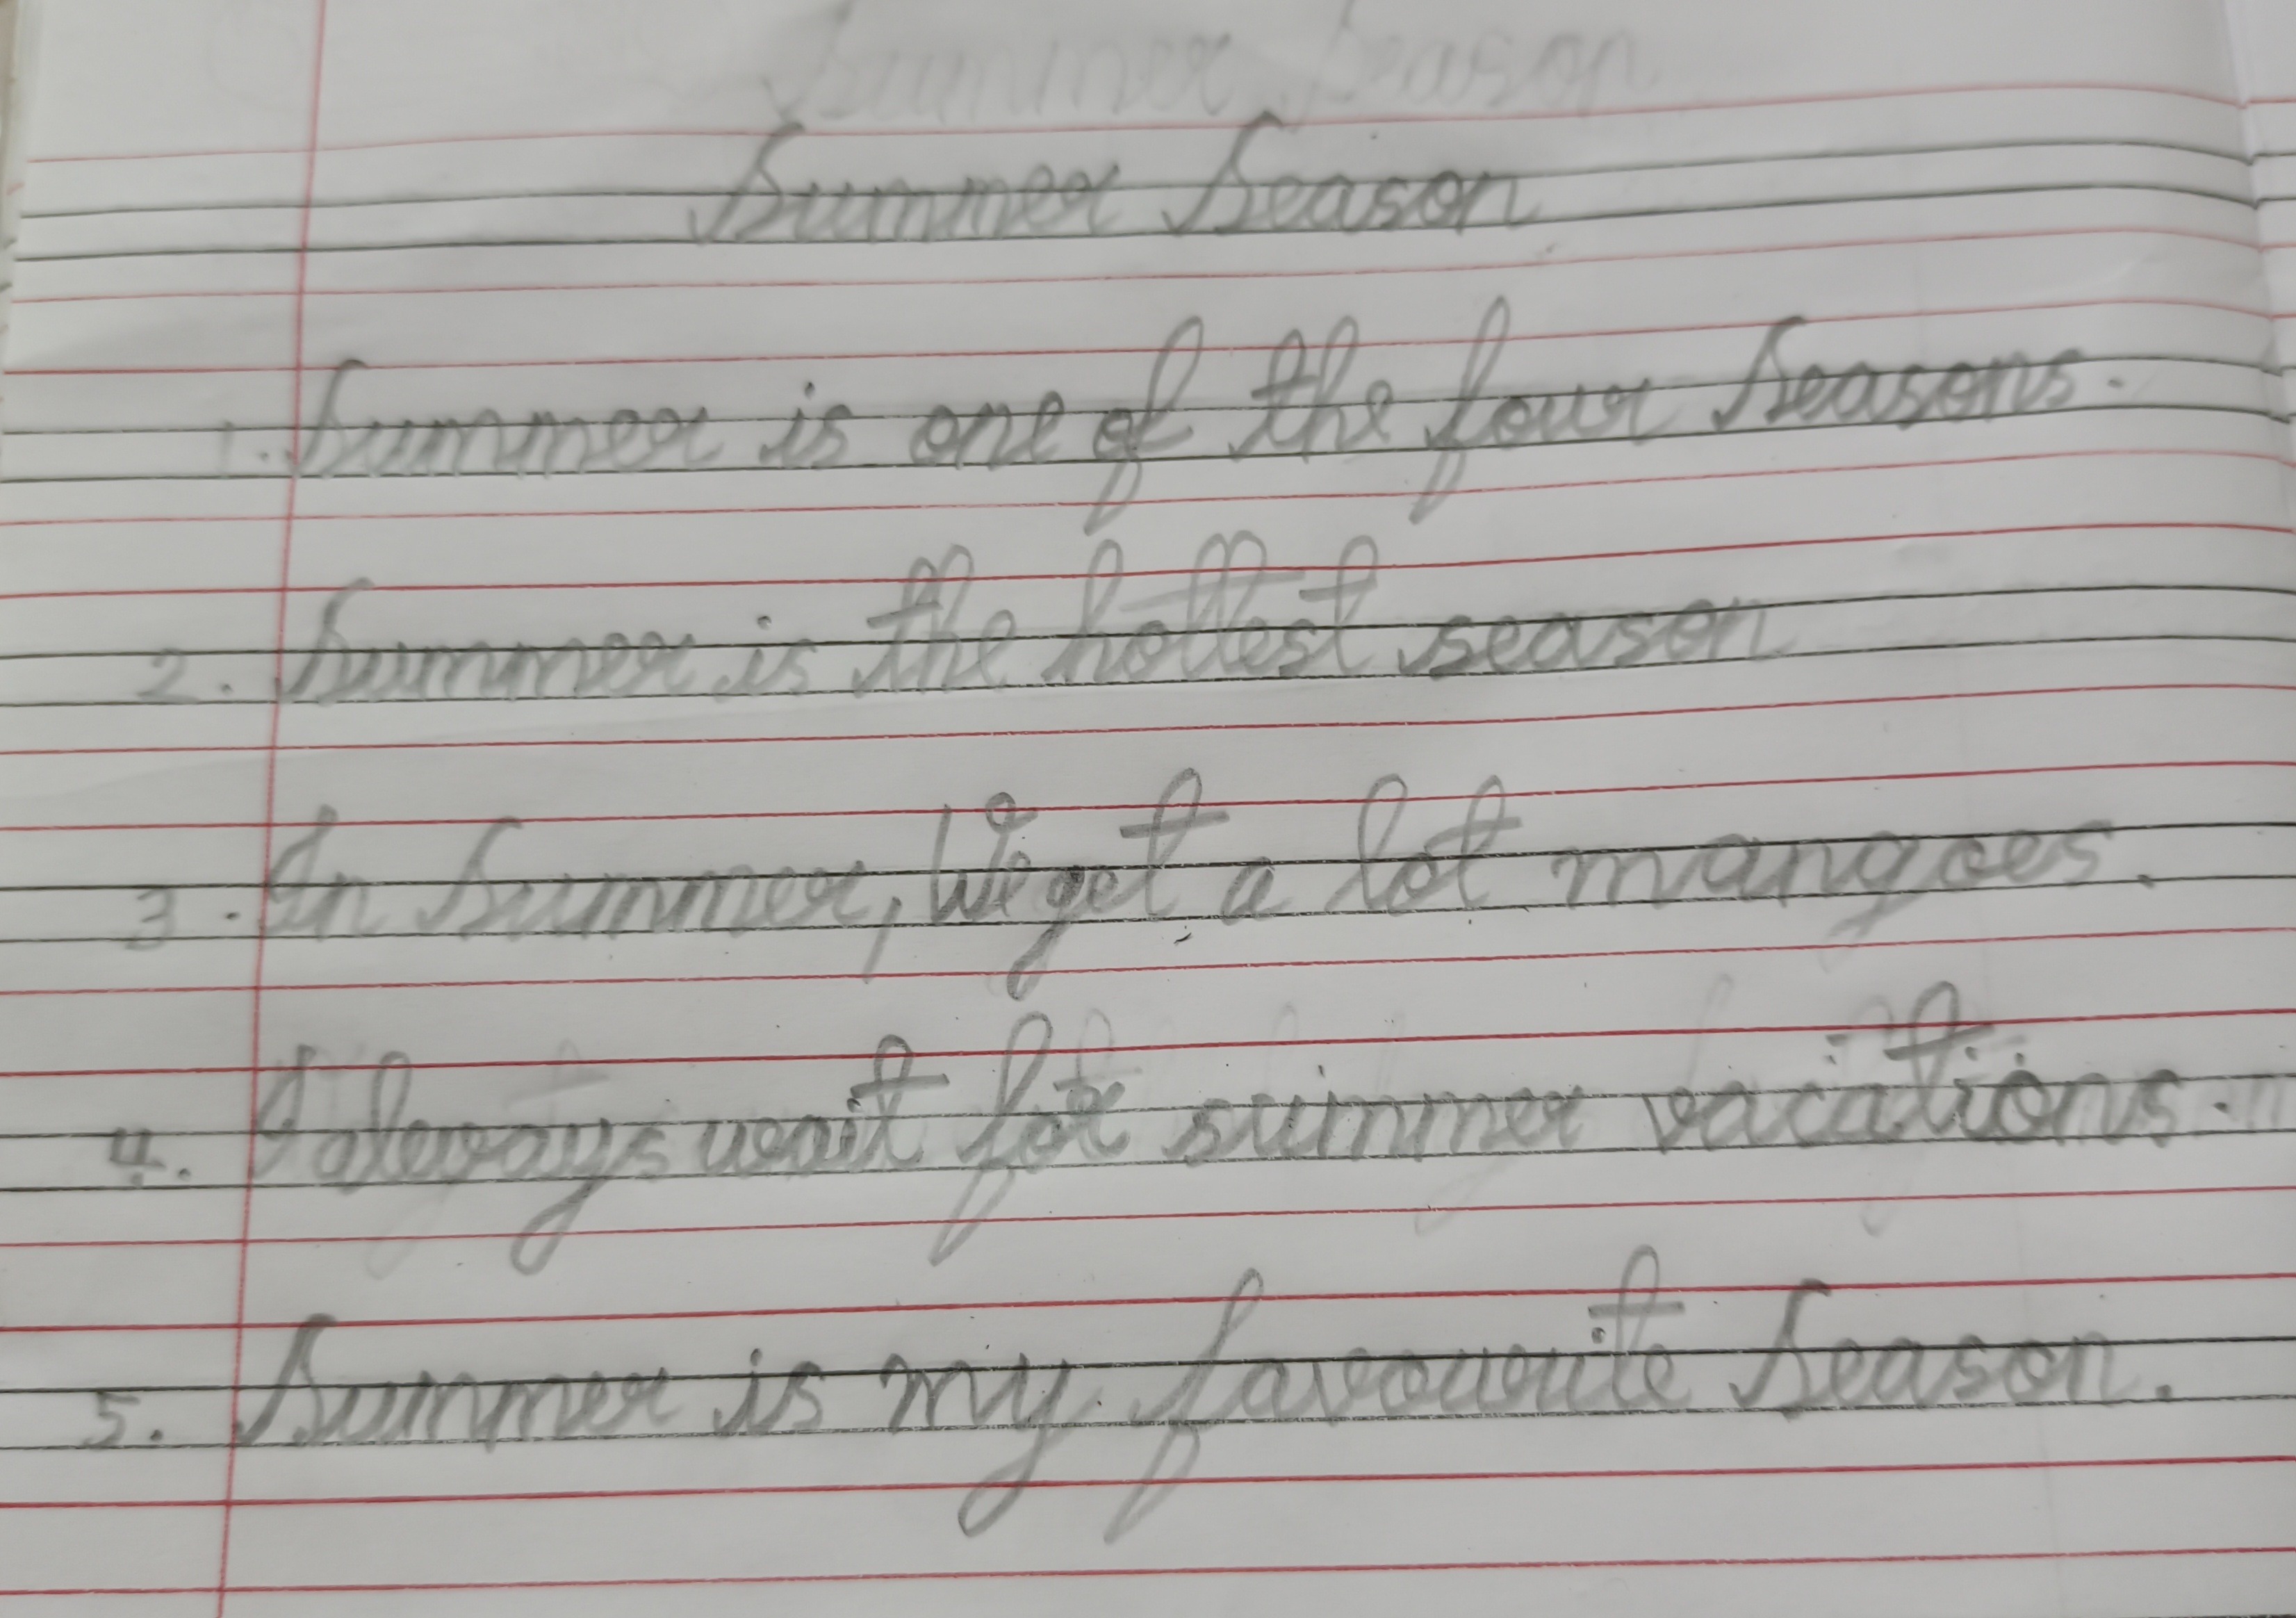 Summer Season
Summer Season
1. Summer is one of the four Seasons.
2. Summer is the hottest season
3. In Summer, We get a lot mangoes.
4. I always wait for summer vacations.
5. Summer is my favourite Season.